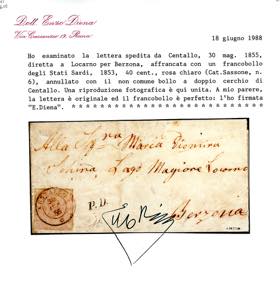 Dott. Enzo Diena
Via Crescenzio 19, Roma
18 giugno 1988
Ho esaminato la lettera spedita da Centallo, 30 mag. 1855,
diretta a Locarno per Berzona, affrancata con un francobollo
degli Stati Sardi, 1853, 40 cent., rosa chiaro (Cat.Sassone, n.
6), annullato con il non comune bollo a doppio cerchio di
Centallo. Una riproduzione fotografica è qui unita. A mio parere,
la lettera è originale ed il francobollo è perfetto: l'ho firmata
"E.Diena". * * * * * * * * * * * * * * * * * * * * * * *
Alla Maria
Lago Magiore Locarno
P.D.
Berzona